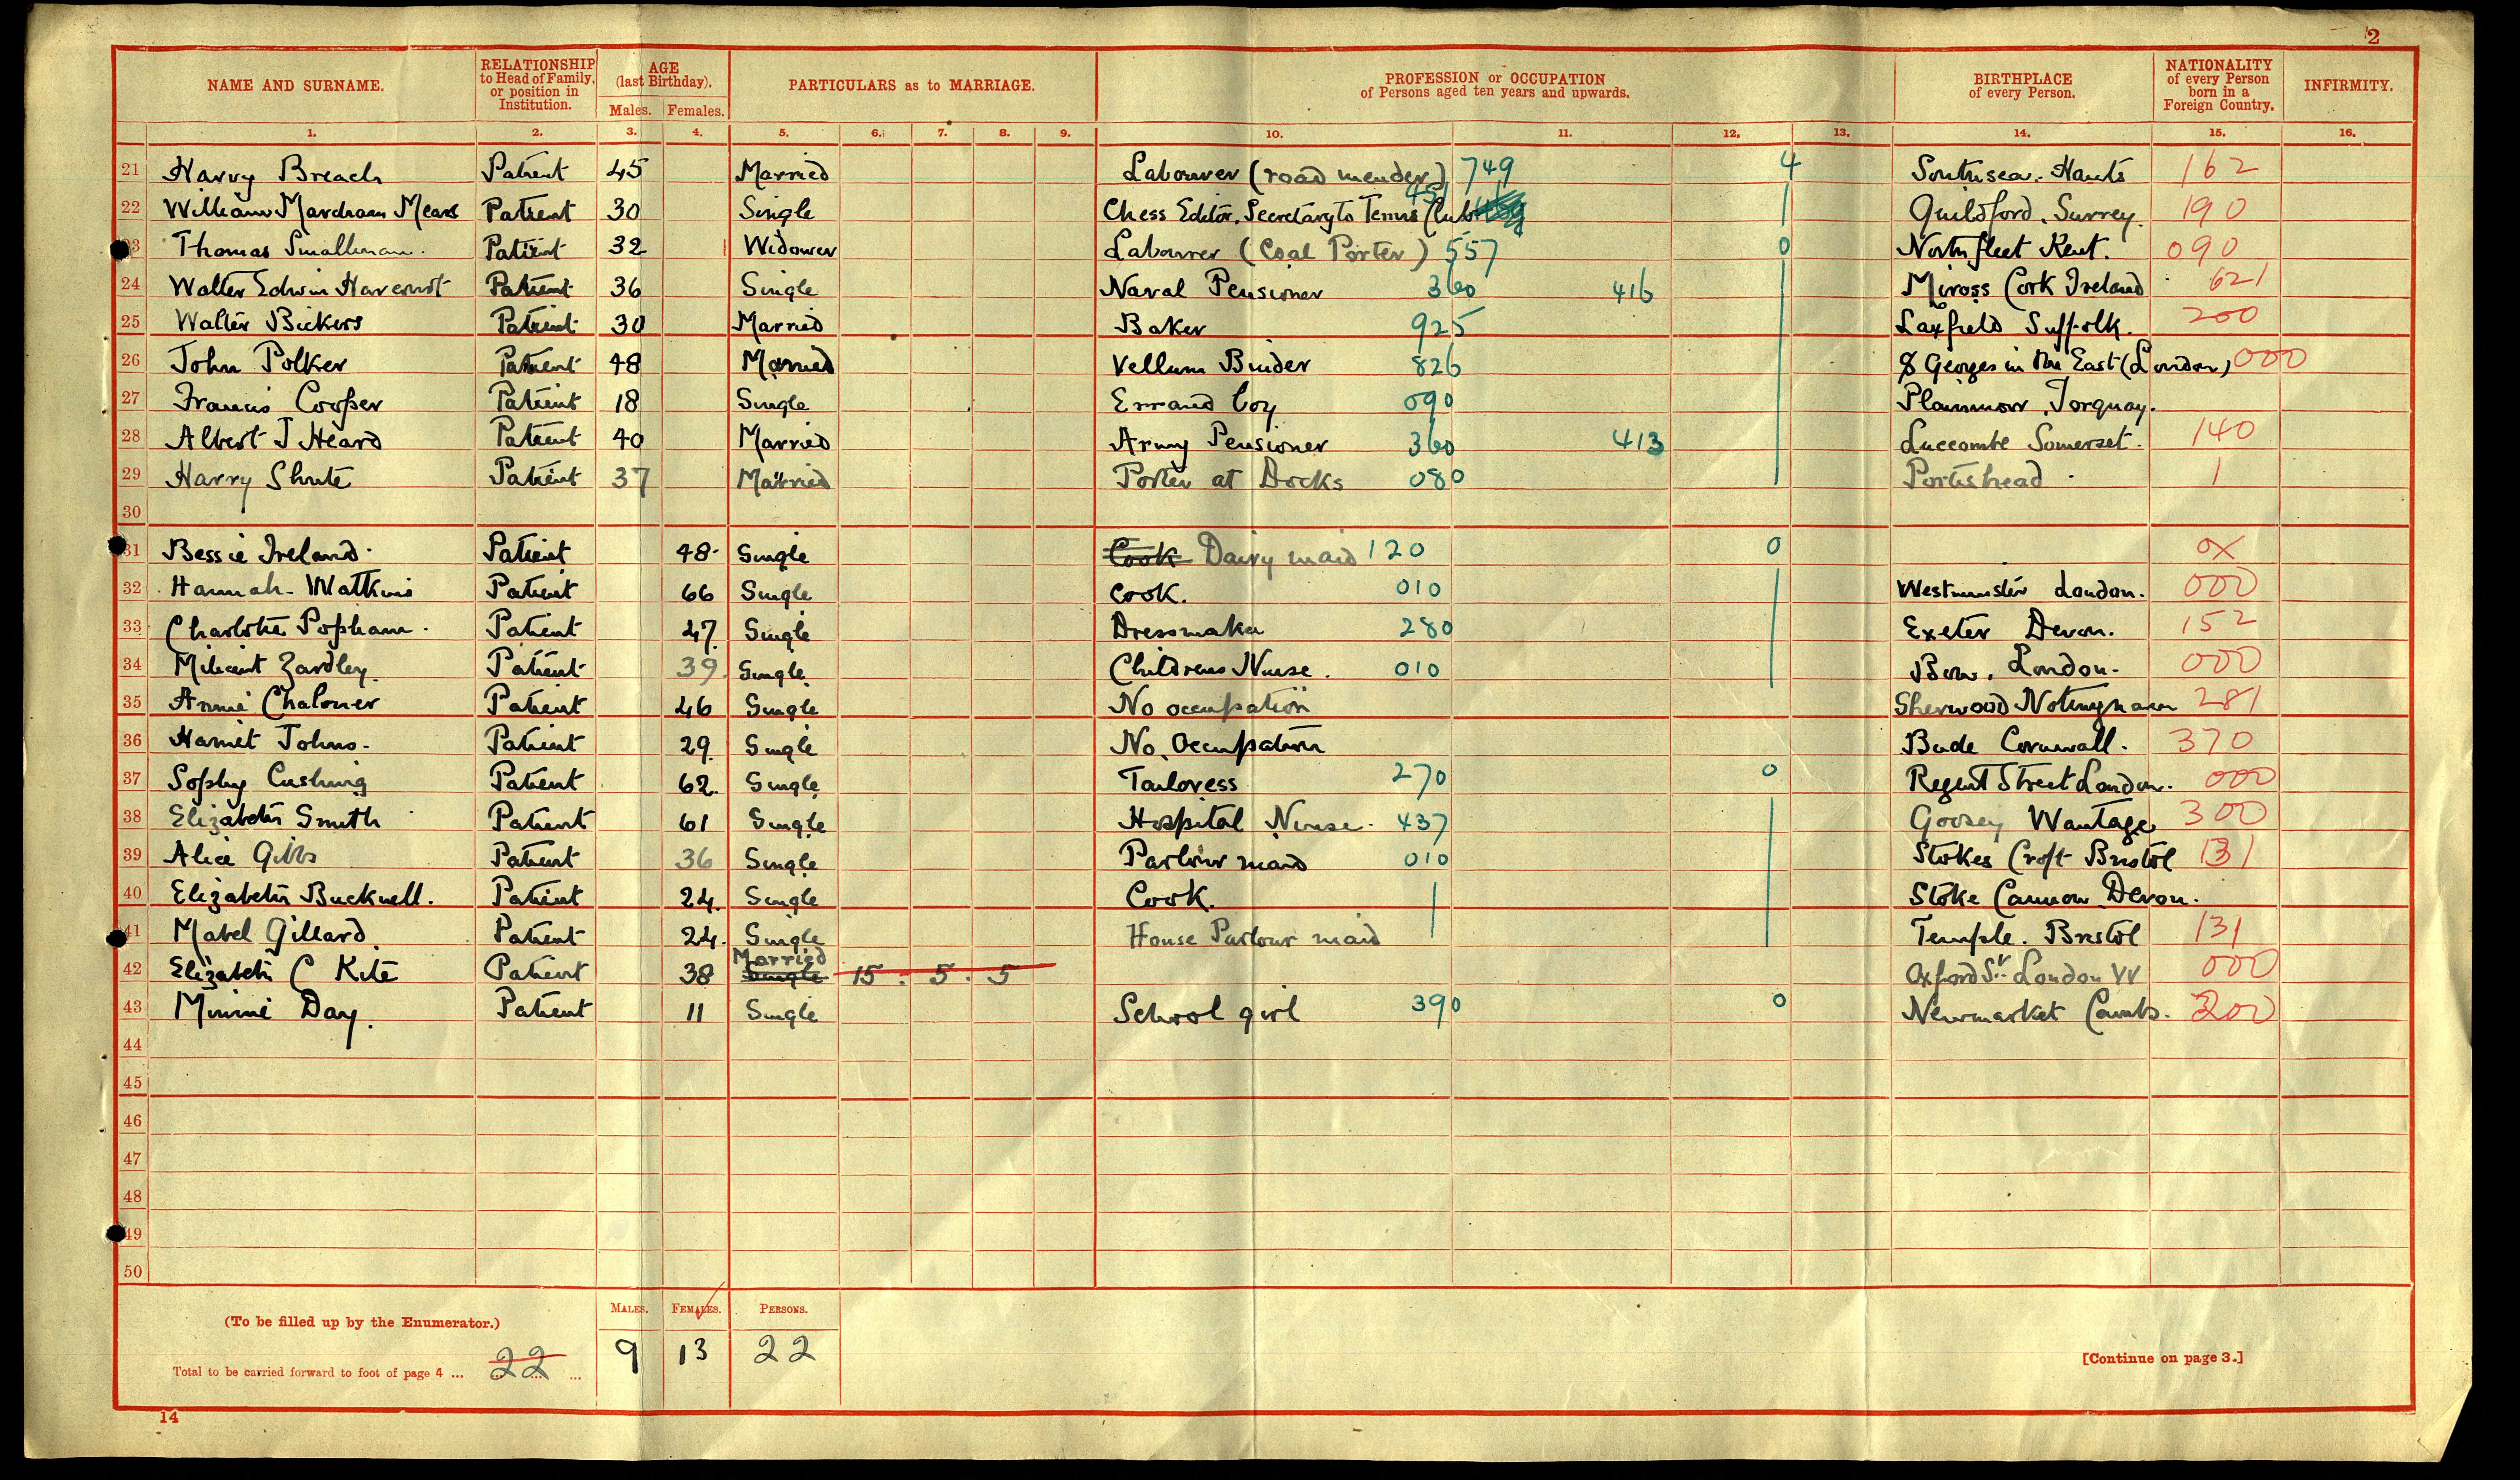 2
NAME AND SURNAME. RELATIONSHIP to Head of Family, or position in Institution. AGE (last Birthday). Males. Females. PARTICULARS as to MARRIAGE. PROFESSION or OCCUPATION of Persons aged ten years and upwards. BIRTHPLACE of every Person. NATIONALITY of every Person born in a Foreign Country. INFIRMITY.
1. 2. 3. 4. 5. 6. 7. 8. 9. 10. 11. 12. 13. 14. 15. 16.
21 Harry Breach Patient 45 Married Labourer (road mender) 749 4 Southsea. Hants 162
22 William Mardham Mears Patient 30 Single Chess Editor. Secretary to Tennis Club 451 Guildford. Surrey. 190
23 Thomas Smallman. Patient 32 Widower Labourer (Coal Porter) 557 0 Northfleet Kent. 090
24 Walter Edwin Patient 36 Single Naval Pensioner 360 416 Miross Cork Ireland 621
25 Walter Bickers Patient 30 Married Baker 925 Laxfield Suffolk. 200
26 John Polker Patient 48 Married Vellum Binder 826 St Georges in the East (London) 000
27 Francis Cooper Patient 18 Single Errand boy 090 Torquay.
28 Albert J Heard Patient 40 Married Army Pensioner 360 413 Luccombe Somerset. 140
29 Harry Shute Patient 37 Married Porter at Docks 080 Portishead 1
30
31 Bessie Ireland. Patient 48. Single Cook Dairy maid 120 0 0X
32 Hannah Watkins Patient 66 Single Cook. 010 Westminster London. 000
33 Charlotte Popham. Patient 47. Single Dressmaker 280 Exeter Devon. 152
34 Milicent Zardley. Patient 39. Single. Childrens Nurse. 010 Bow. London. 000
35 Annie Chaloner Patient 46 Single No occupation Sherwood Notingham 281
36 Harriet Johns. Patient 29. Single No. Occupation Bude Cornwall. 370
37 Sophy Cushing Patient 62. Single Tailoress 270 0 Regent Street London. 000
38 Elizabeth Smith Patient 61 Single Hospital Nurse. 437 Goosey Wantage 300
39 Alice Gibbs Patient 36 Single Parlour maid 010 Stokes Croft Bristol 131
40 Elizabeth Bucknell. Patient 24. Single Cook. Stoke Cannon Devon.
41 Mabel Gillard Patient 24. Single House Parlour maid Temple. Bristol 131
42 Elizabeth C Kite Patient 38 Married Single 15. 5. 5 Oxford St. London W 000
43 Minnie Day. Patient 11 Single School girl 390 0 Newmarket Cambs. 200
44
45
46
47
48
49
50
MALES. FEMALES. PERSONS.
(To be filled up by the Enumerator.)
Total to be carried forward to foot of page 4 ... 22 ... 9 13 22
[Continue on page 3.]
14